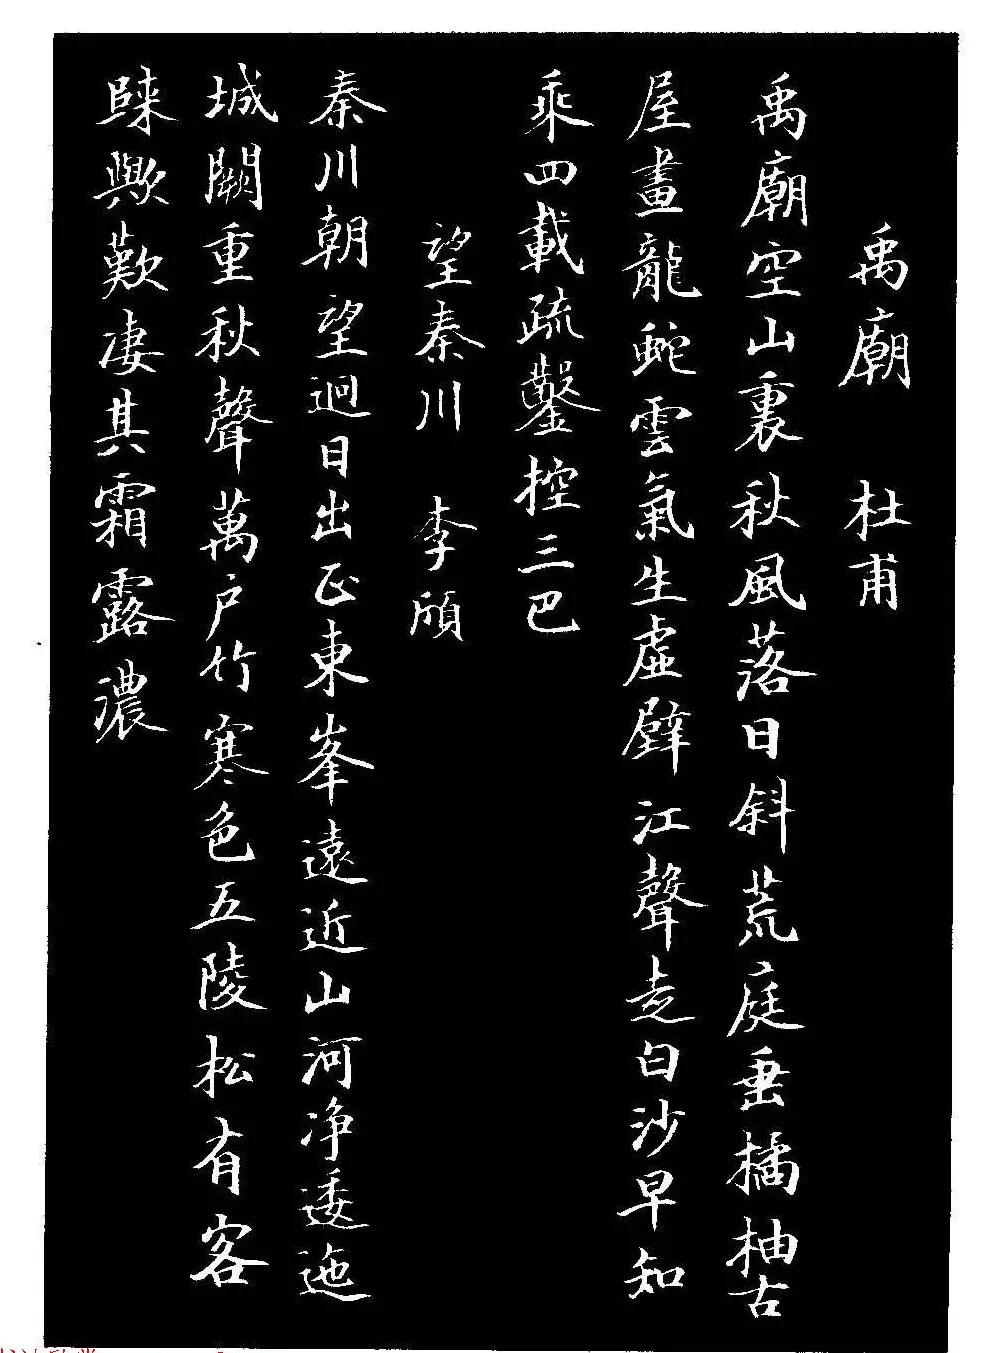 禹廟　杜甫
禹廟空山裏秋風落日斜荒庭垂橘柚古
屋畫龍蛇雲氣生虛壁江聲走白沙早知
乘四載疏鑿控三巴
望秦川　李頎
秦川朝望迥日出正東峯遠近山河净逶迤
城闕重秋聲萬户竹寒色五陵松有客
歸歟歎凄其霜露濃